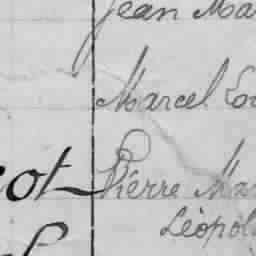 Jean Ma
Marcel Lo
cot Pierre Ma
Léopol